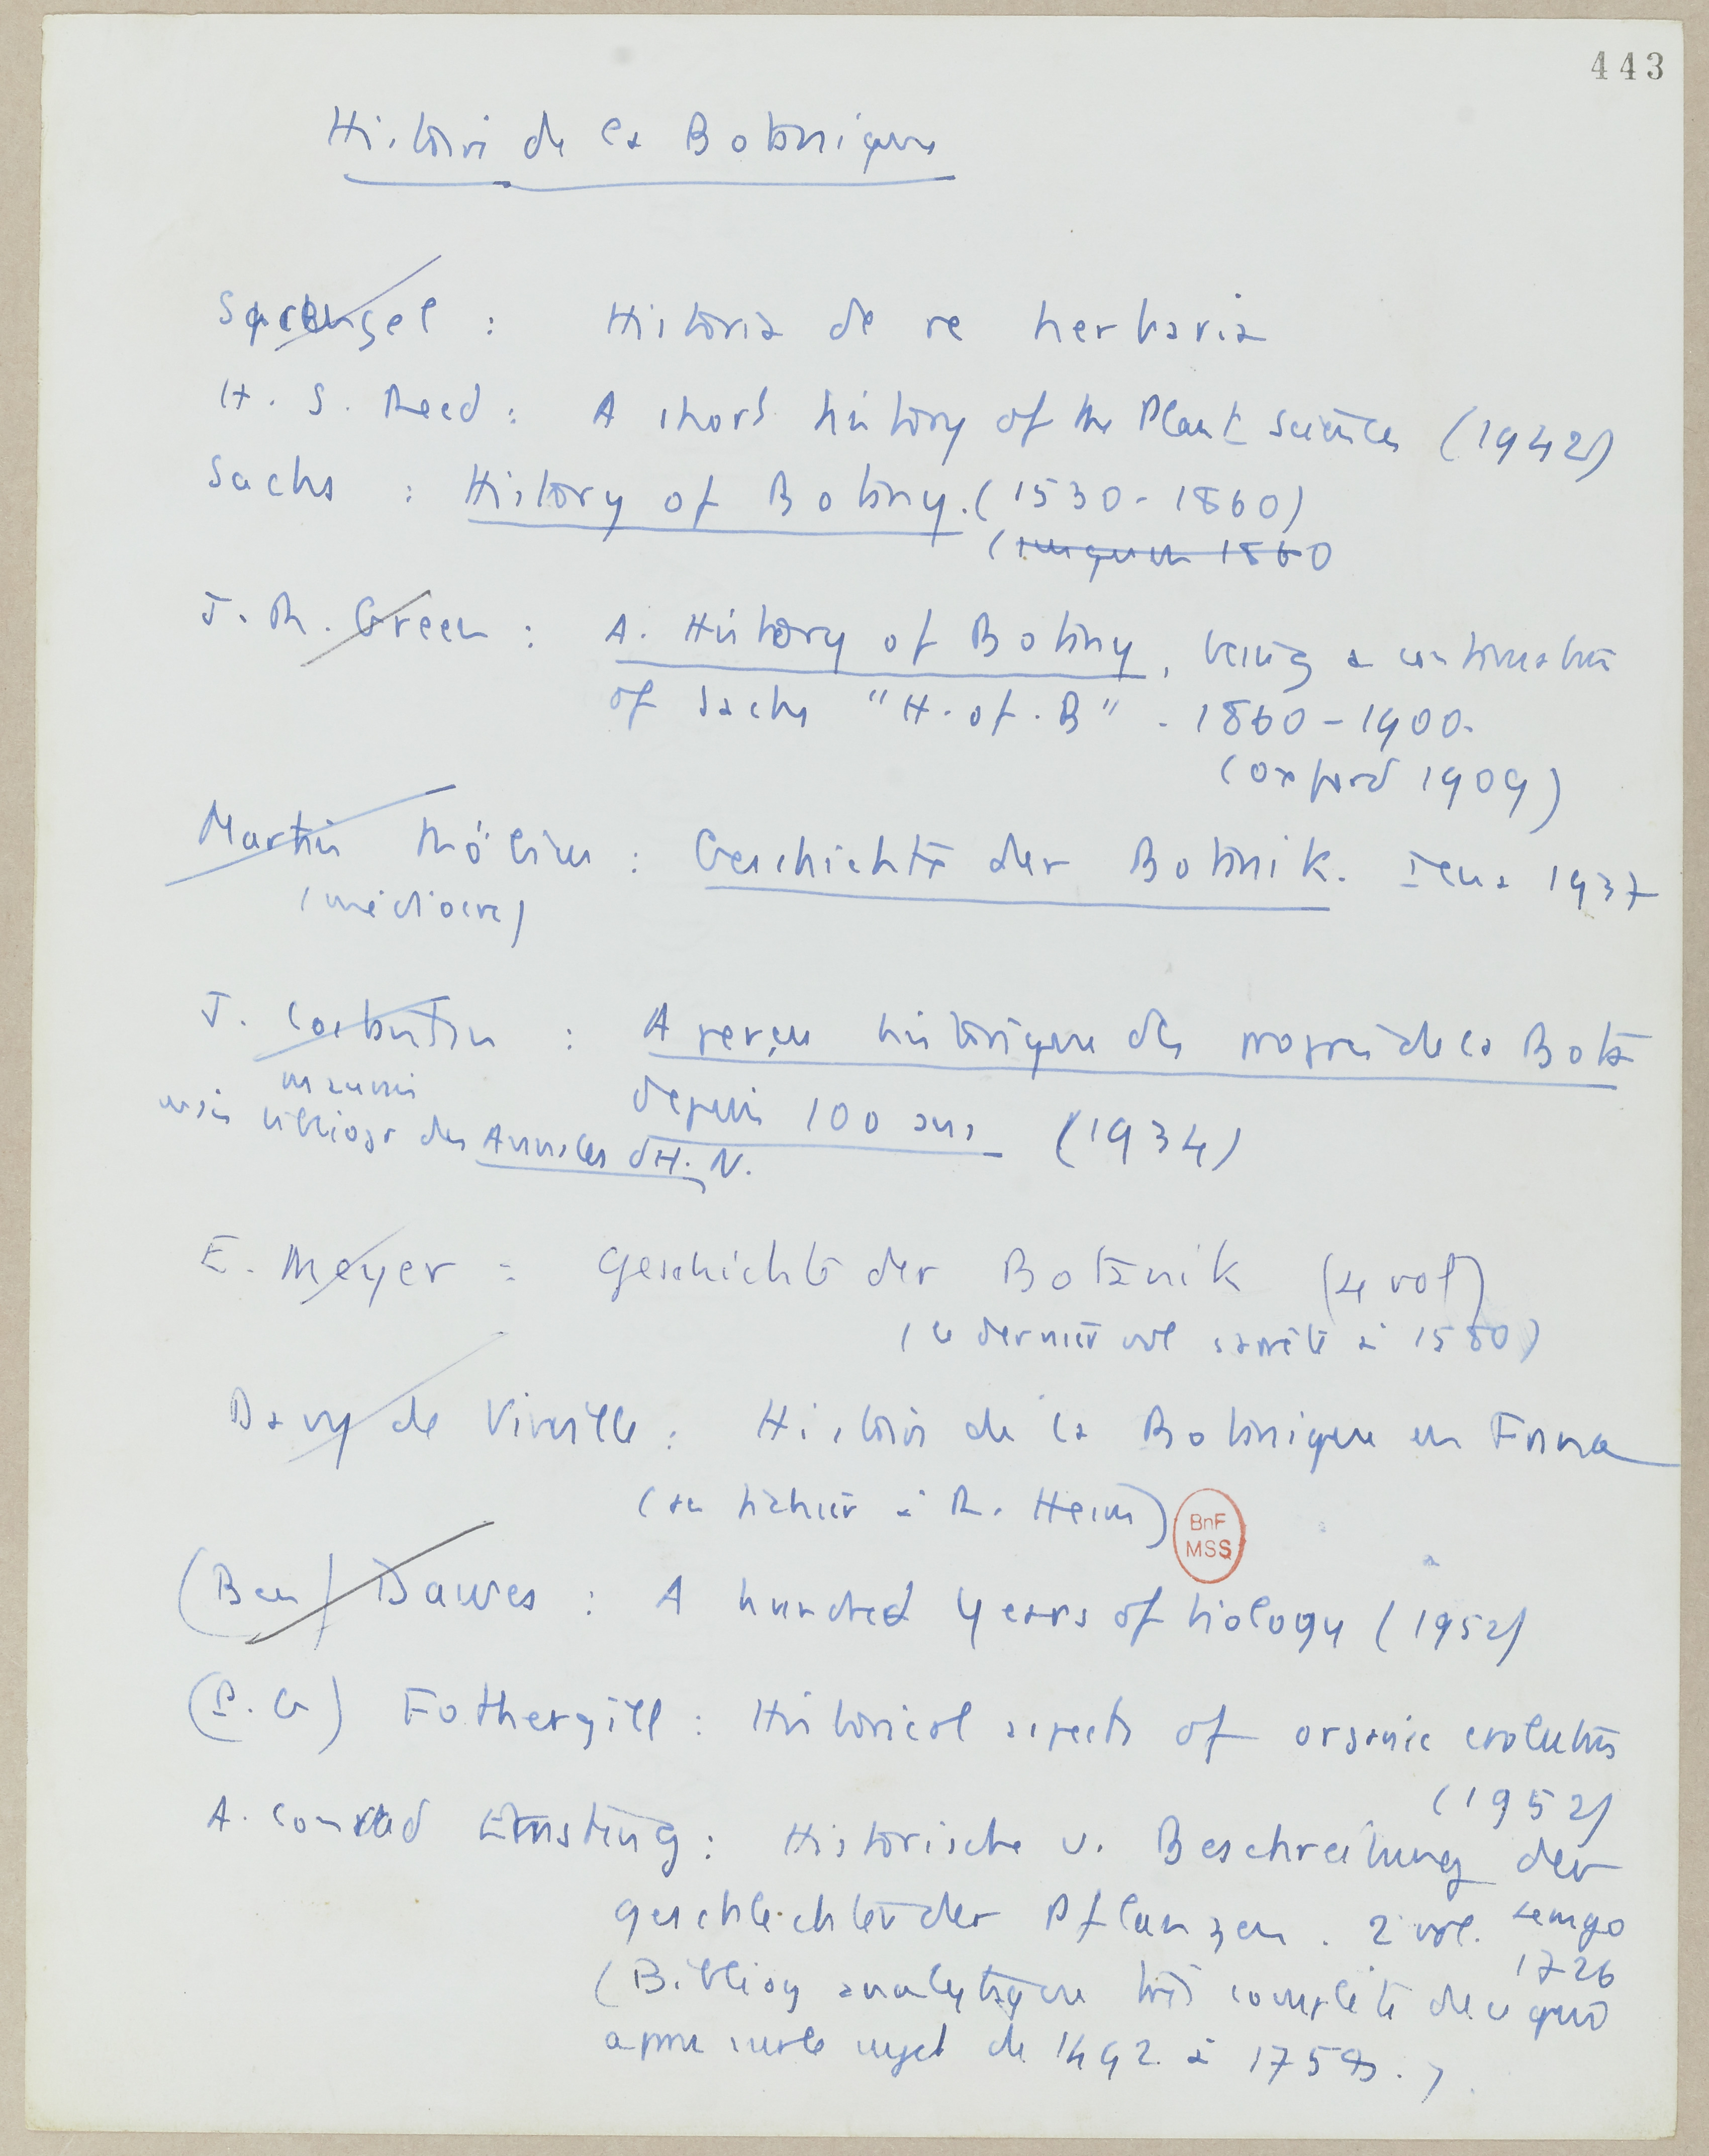 443
Histoire de la Botanique
Sprengel : Historia de re herbaria
H. S. Reed : A short history of the Plant sciences (1942)
Sachs : History of Botany. (1530-1860)
(jusquen 1860
J. R. Green : A. History of Botany, being a continuation
of Sachs "H. of. B" - 1860-1900.
(Oxford 1909)
Martin Möbius : Geschichte der Botanik. Iena 1937
(médiocre)
J. Costantin : Aperçu historique des progrès de la Bota
mauvais
depuis 100 ans (1934)
mais bibliogr des Annales d H. N.
E. Meyer : Geschichte der Botanik (4 vol)
(le dernier vol s'arrête à 1580)
Davy de Virville : Histoire de la Botanique en France
(au fichier à R. Heim)
BnF
MSS
(Ben) Dawes : A hundred years of biology (1952)
(P. G) Fothergill : Historical aspects of organic evolution
(1952)
A. Conrad Ernsting : Historische u. Beschreibung der
geschlechter der Pflanzen. 2 vol. Lemgo
1726
(Bibliog analytique très complète de ce qui
a paru sur le sujet de 1492 à 1759.)